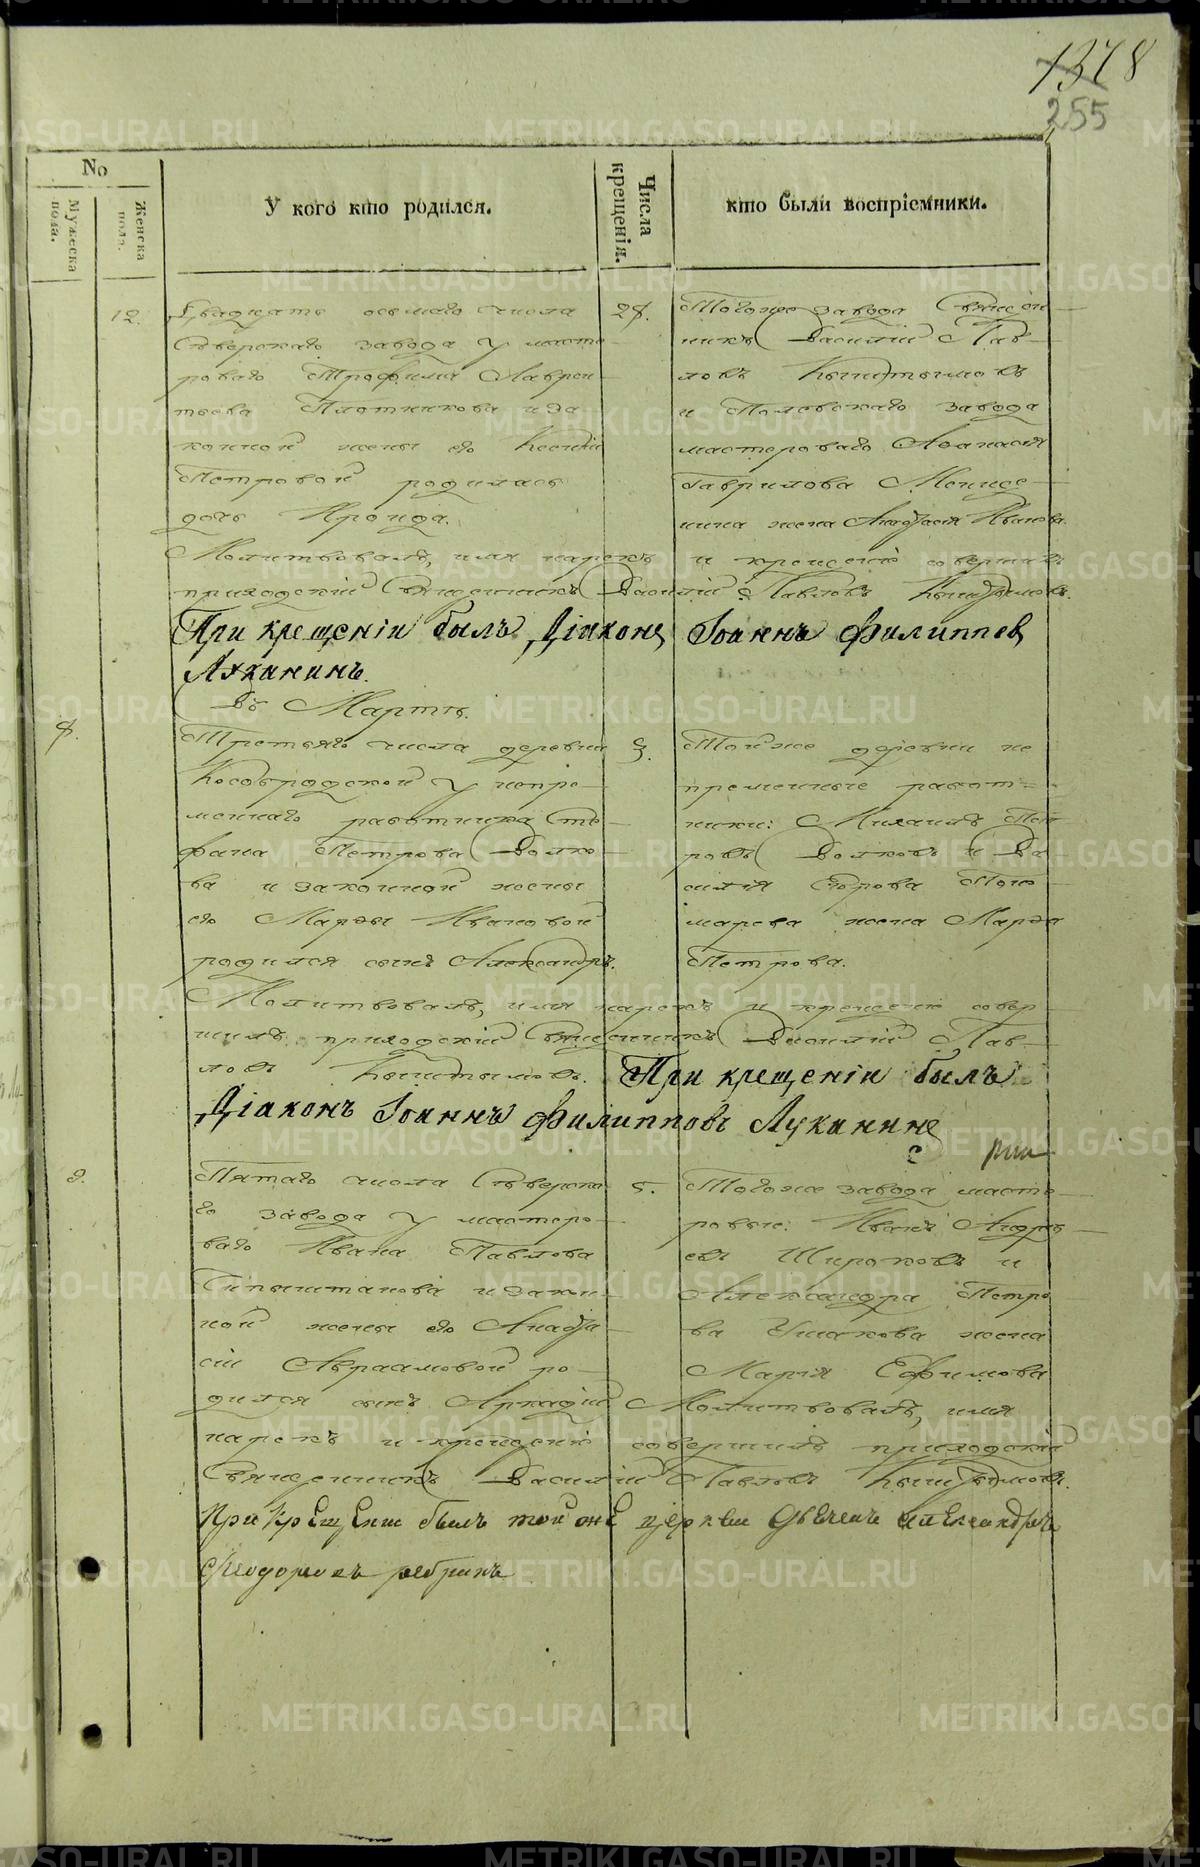 1378
255
No
Мужеска пола.
Женска пола.
У кого кто родился.
Числа крещенія.
кто были воспріемники.
12.
Двадцать осьмаго числа
Сѣверскаго завода у масте
роваго Трофима Лаврен
тьева Плотникова и за
конной жены его Ксеніи
Петровой родилась
дочь Ираида.
28.
Тогоже завода Священ
никъ Василій Пав
ловъ Кыштымовъ
и Полевскаго завода
мастероваго Афанасія
Гаврилова
жена Анастасія Иванова.
Молитвовалъ, имя нарекъ и крещеніе совершилъ
приходскій Священникъ Василій Павловъ Кыштымовъ.
При крещеніи былъ Діаконъ Іоаннъ Филипповъ
Луканинъ.
Въ Мартѣ.
8.
Третьяго числа деревни
Кособродской у непре
меннаго работника Сте
фана Петрова Волко
ва и законной жены
его Марфы Ивановой
родился сынъ Александръ.
3.
Тойже деревни не
пременные работ
ники: Михаилъ Пет
ровъ Волковъ и Ва
силія Егорова Поно
марева жена Марфа
Петрова.
Молитвовалъ, имя нарекъ и крещеніе совер
шилъ приходскій Священникъ Василій Пав
ловъ Кыштымовъ. При крещеніи былъ
Діаконъ Іоаннъ Филипповъ Луканинъ
9.
Пятаго числа Сѣверска
го завода у мастеро
ваго Ивана Павлова
и закон
ной жены его Анаста
сіи Авраамовой ро
дился сынъ Аркадій
5.
Тогоже завода масте
ровые: Иванъ Андре
евъ Широковъ и
Александра Петро
ва Ушакова жена
Марія Ефимова
Молитвовалъ, имя
нарекъ и крещеніе совершилъ приходскій
Священникъ Василій Павловъ Кыштымовъ.
При Крещеніи былъ той же церкви Дьячекъ Александръ
Феодоровъ ребринъ
METRIKI.GASO-URAL.RU